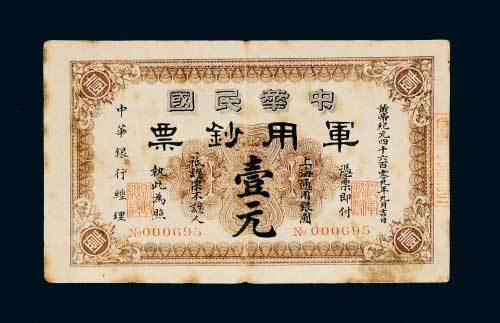 中華民國
軍用鈔票
黃帝紀元四千六百零九年九月吉日
憑票即付
上海通用銀圓
壹元
認票不認人
執此為照
中華銀行經理
No 000695
No 000695